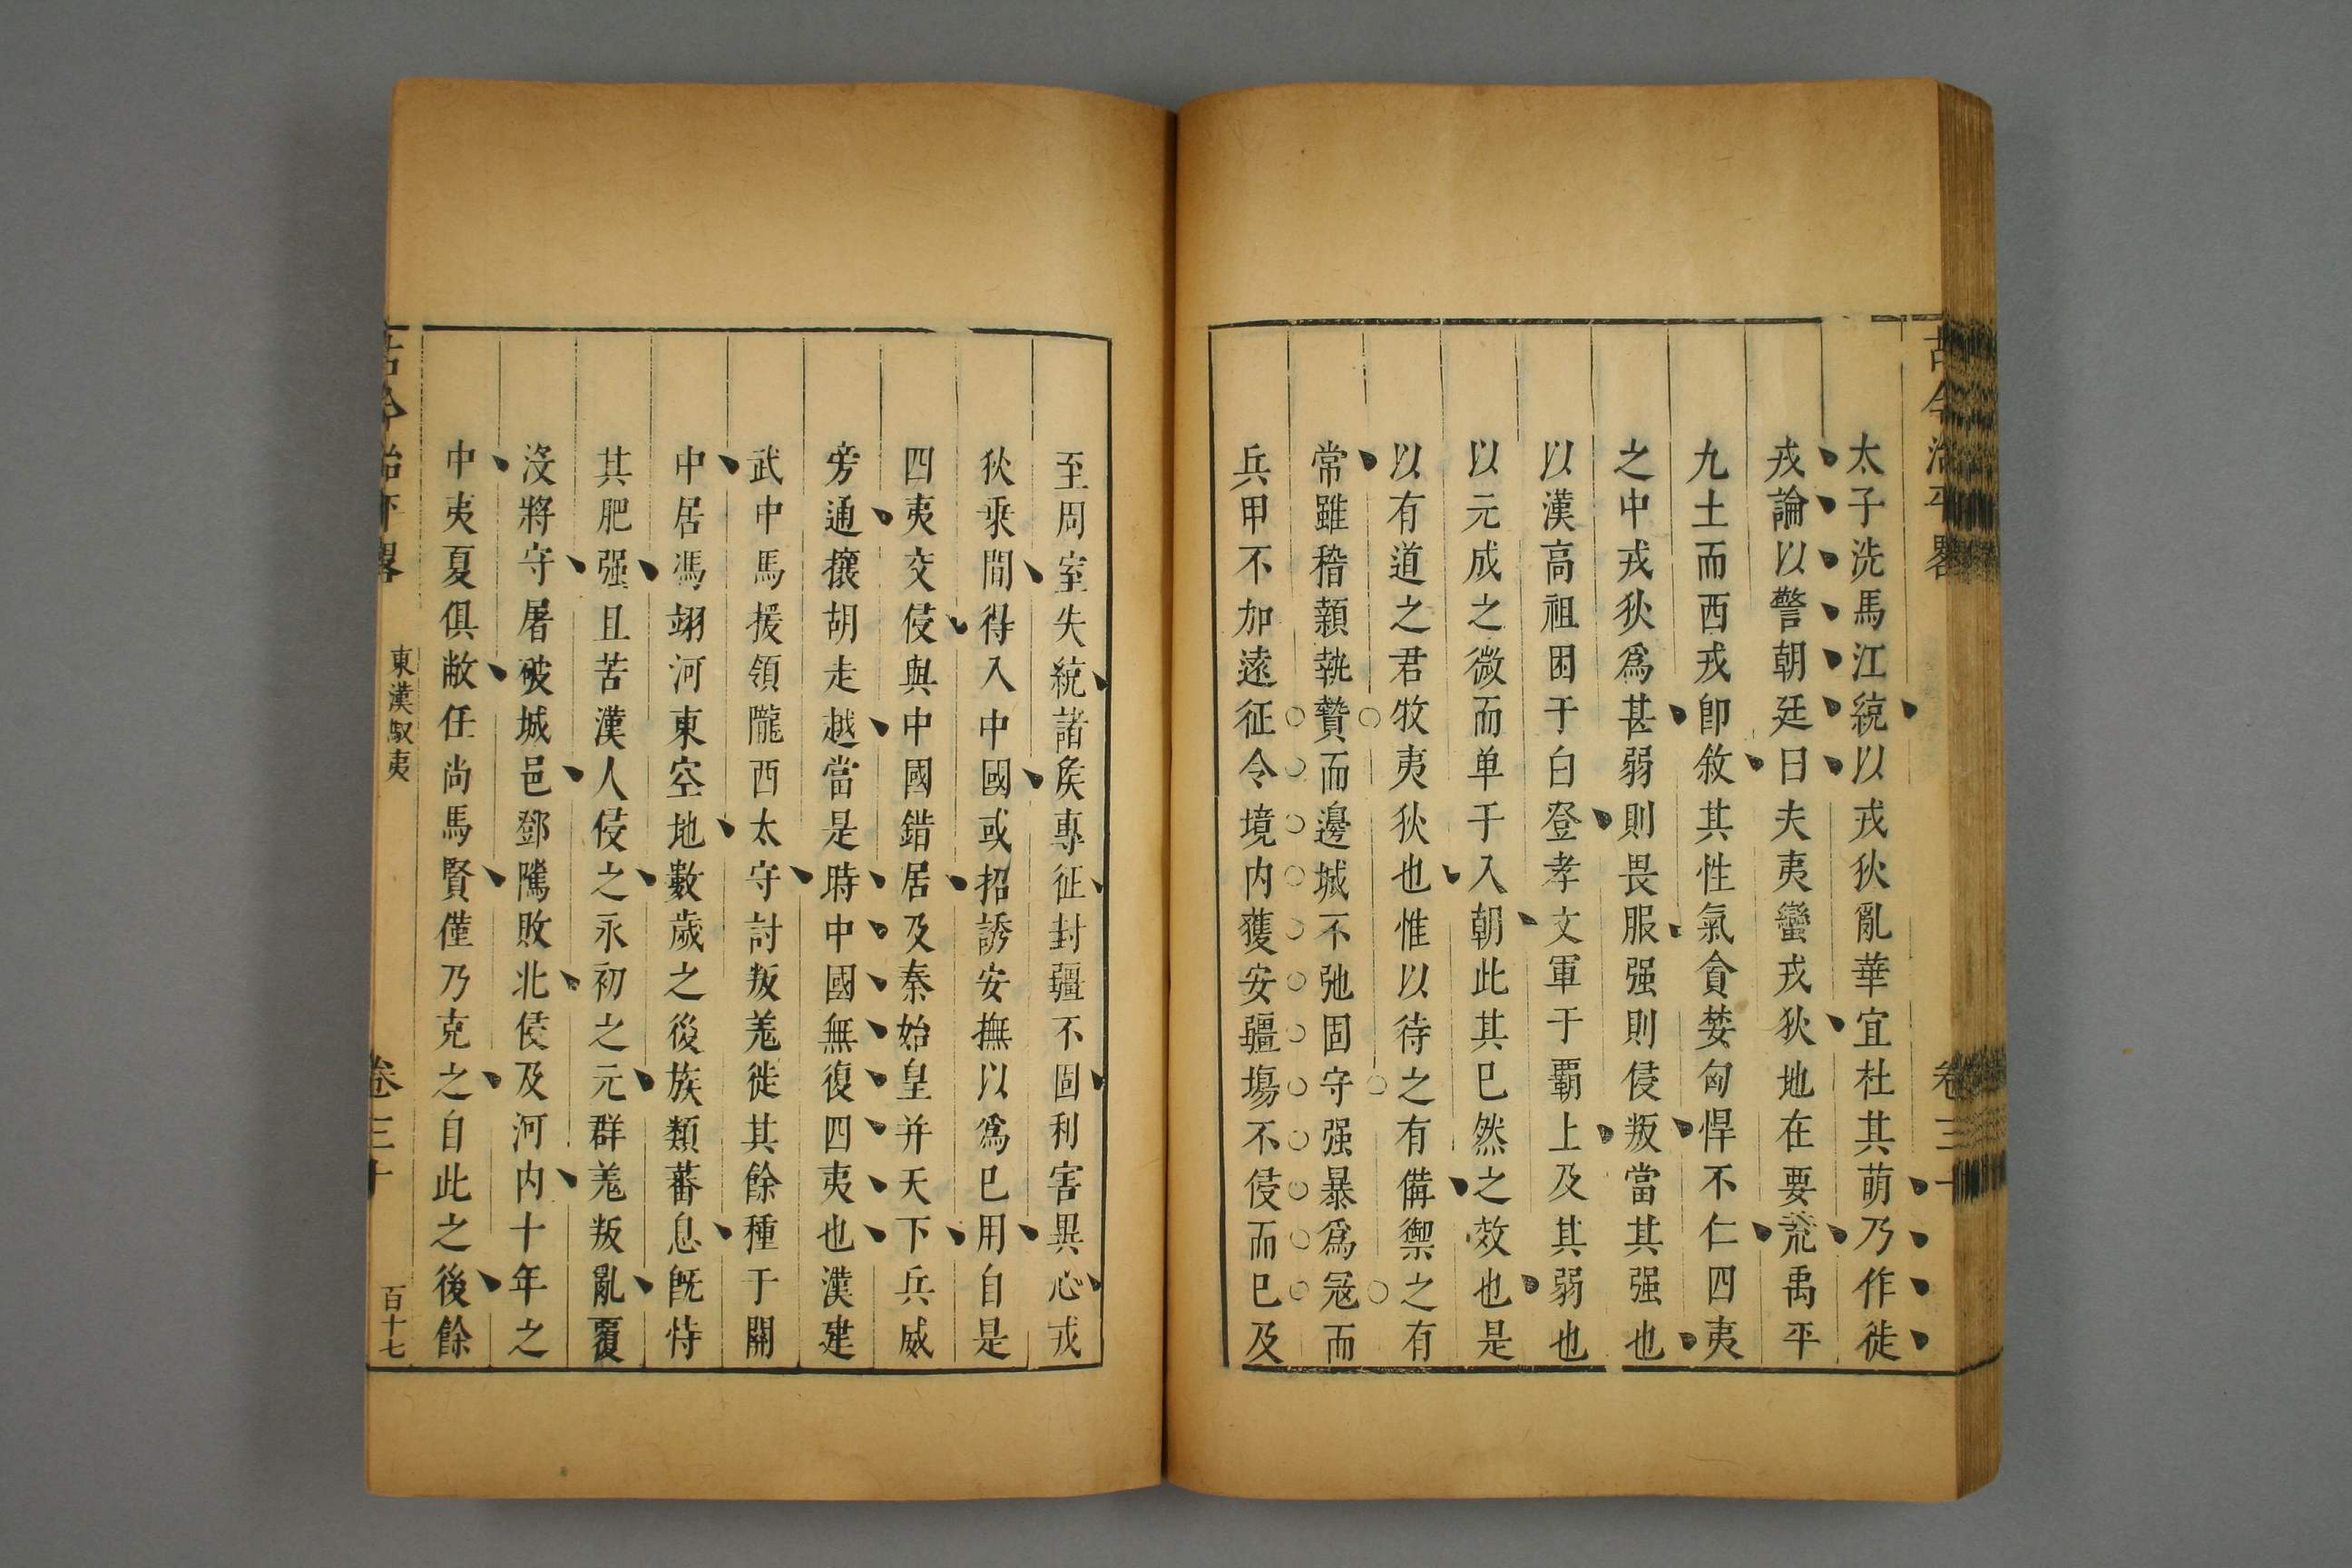 古今治平畧
卷三十
太子洗馬江統以戎狄亂華宜杜其萌乃作徙
戎論以警朝廷曰夫夷蠻戎狄地在要荒禹平
九土而西戎卽敘其性氣貪婪匈悍不仁四夷
之中戎狄爲甚弱則畏服强則侵叛當其强也
以漢高祖困于白登孝文軍于覇上及其弱也
以元成之微而单于入朝此其巳然之效也是
以有道之君牧夷狄也惟以待之有備禦之有
常雖稽顙執贄而邊城不弛固守强暴爲冦而
兵甲不加遠征令境内獲安疆埸不侵而巳及
至周室失統諸矦專征封疆不固利害異心戎
狄乘間得入中國或招誘安撫以爲巳用自是
四夷交侵與中國錯居及秦始皇并天下兵威
旁通攘胡走越當是時中國無復四夷也漢建
武中馬援領隴西太守討叛羗徙其餘種于關
中居馮翊河東空地數歲之後族類蕃息旣恃
其肥强且苦漢人侵之永初之元群羗叛亂覆
没將守屠破城邑鄧隲敗北侵及河内十年之
中夷夏俱敝任尚馬賢僅乃克之自此之後餘
古今治平畧
東漢馭夷
卷三十
百十七